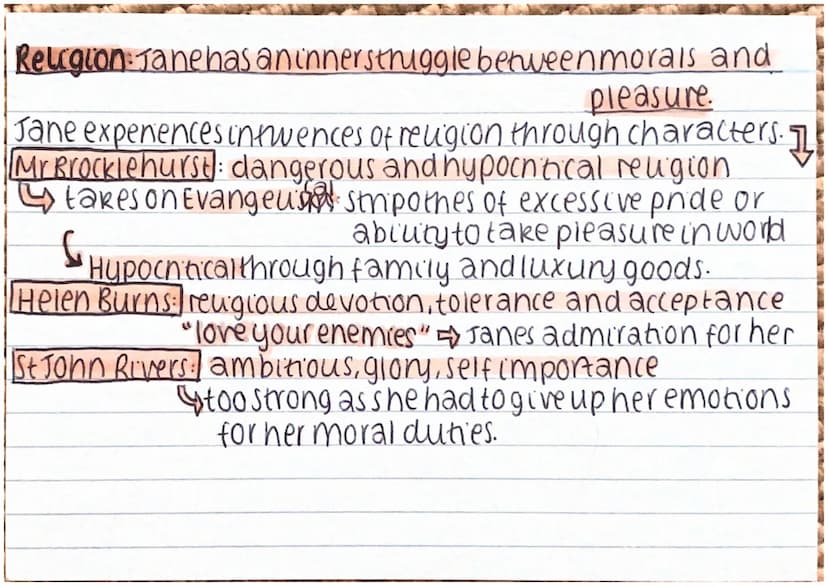 Religion: Jane has an inner struggle between morals and
pleasure.
Jane experiences influences of religion through characters.
Mr Brocklehurst: dangerous and hypocritical religion
takes on Evangelical strip othes of excessive pride or
ability to take pleasure in world
Hypocritical through family and luxury goods.
Helen Burns: religious devotion, tolerance and acceptance
"love your enemies" ⇒ Janes admiration for her
St John Rivers: ambitious, glory, self importance
too strong as she had to give up her emotions
for her moral duties.